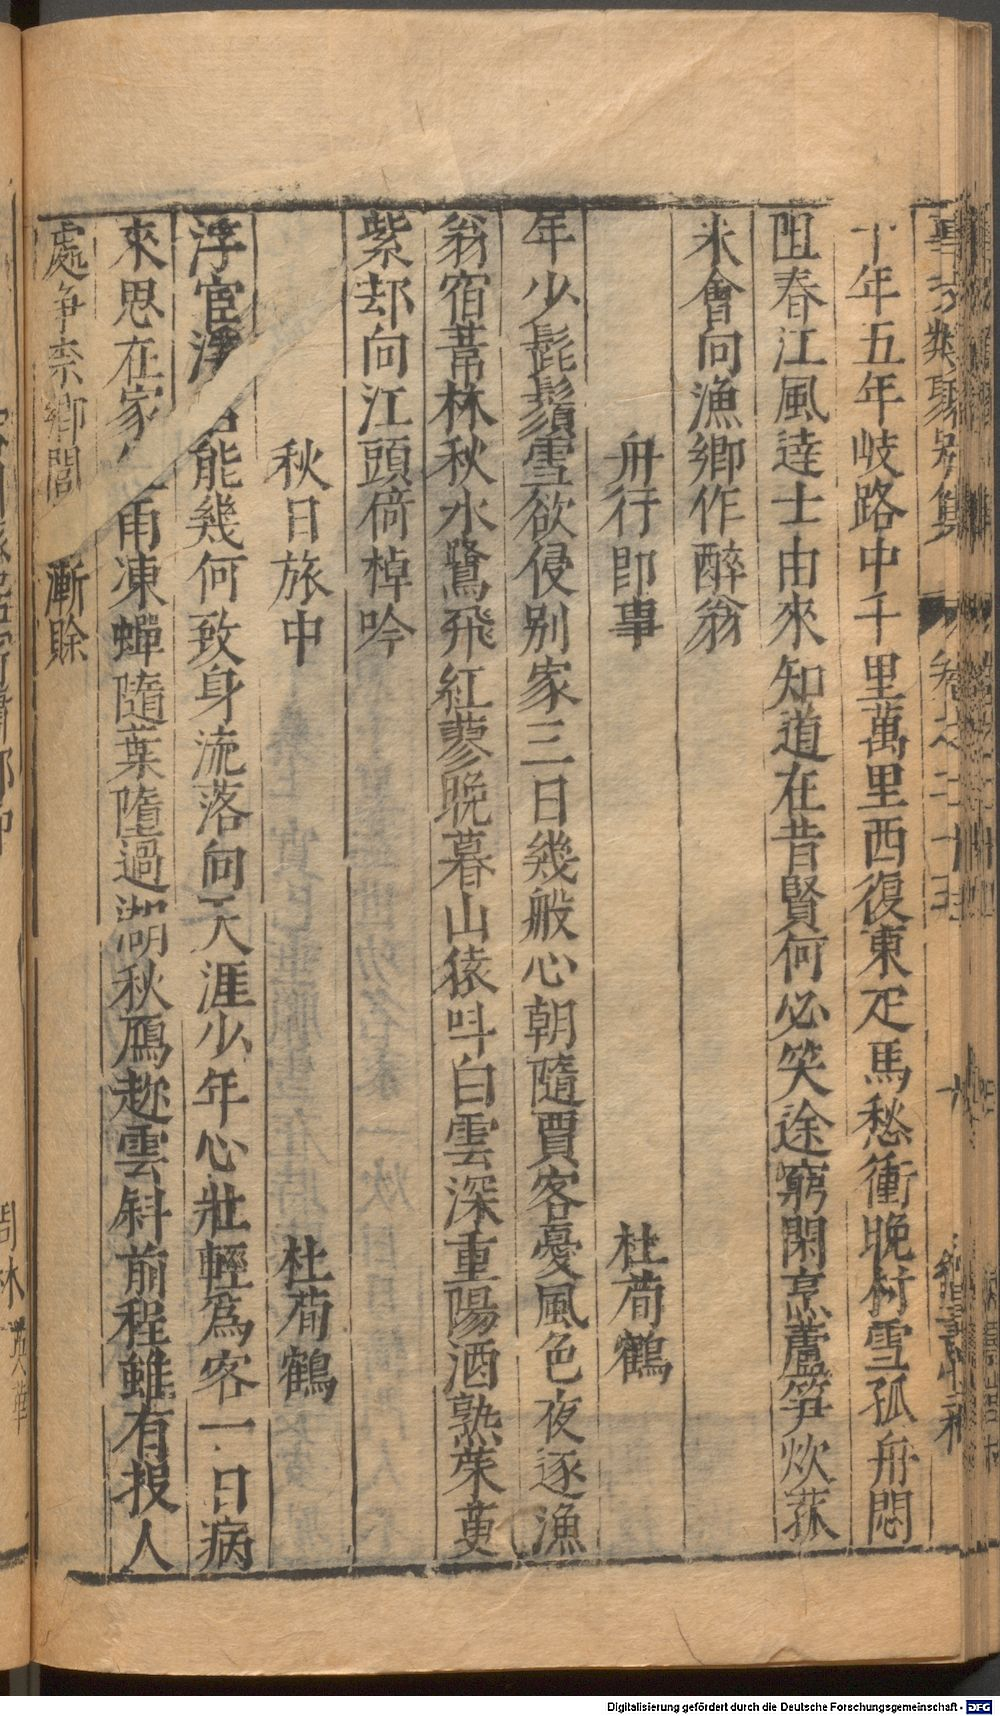 事文類聚别集 卷之二十五 六
十年五年岐路中千里萬里西復東疋馬愁衝晚村雪孤舟悶
阻春江風達士由來知道在昔賢何必笑途窮閑烹蘆笋炊菰
米會向漁鄉作醉翁
舟行即事 杜荀鶴
年少髭鬚雪欲侵别家三日幾般心朝隨賈客憂風色夜逐漁
翁宿葦林秋水鷺飛紅蓼晚暮山猿呌白雲深重陽酒熟茱萸
紫却向江頭倚棹吟
秋日旅中 杜荀鶴
浮宦浮 能幾何致身流落向天涯少年心壯輕爲客一日病
來思在家 雨凍蟬隨葉墮過湖秋鴈趂雲斜前程雖有投人
處爭奈鄉閭 漸賖
Digitalisierung gefördert durch die Deutsche Forschungsgemeinschaft - DFG